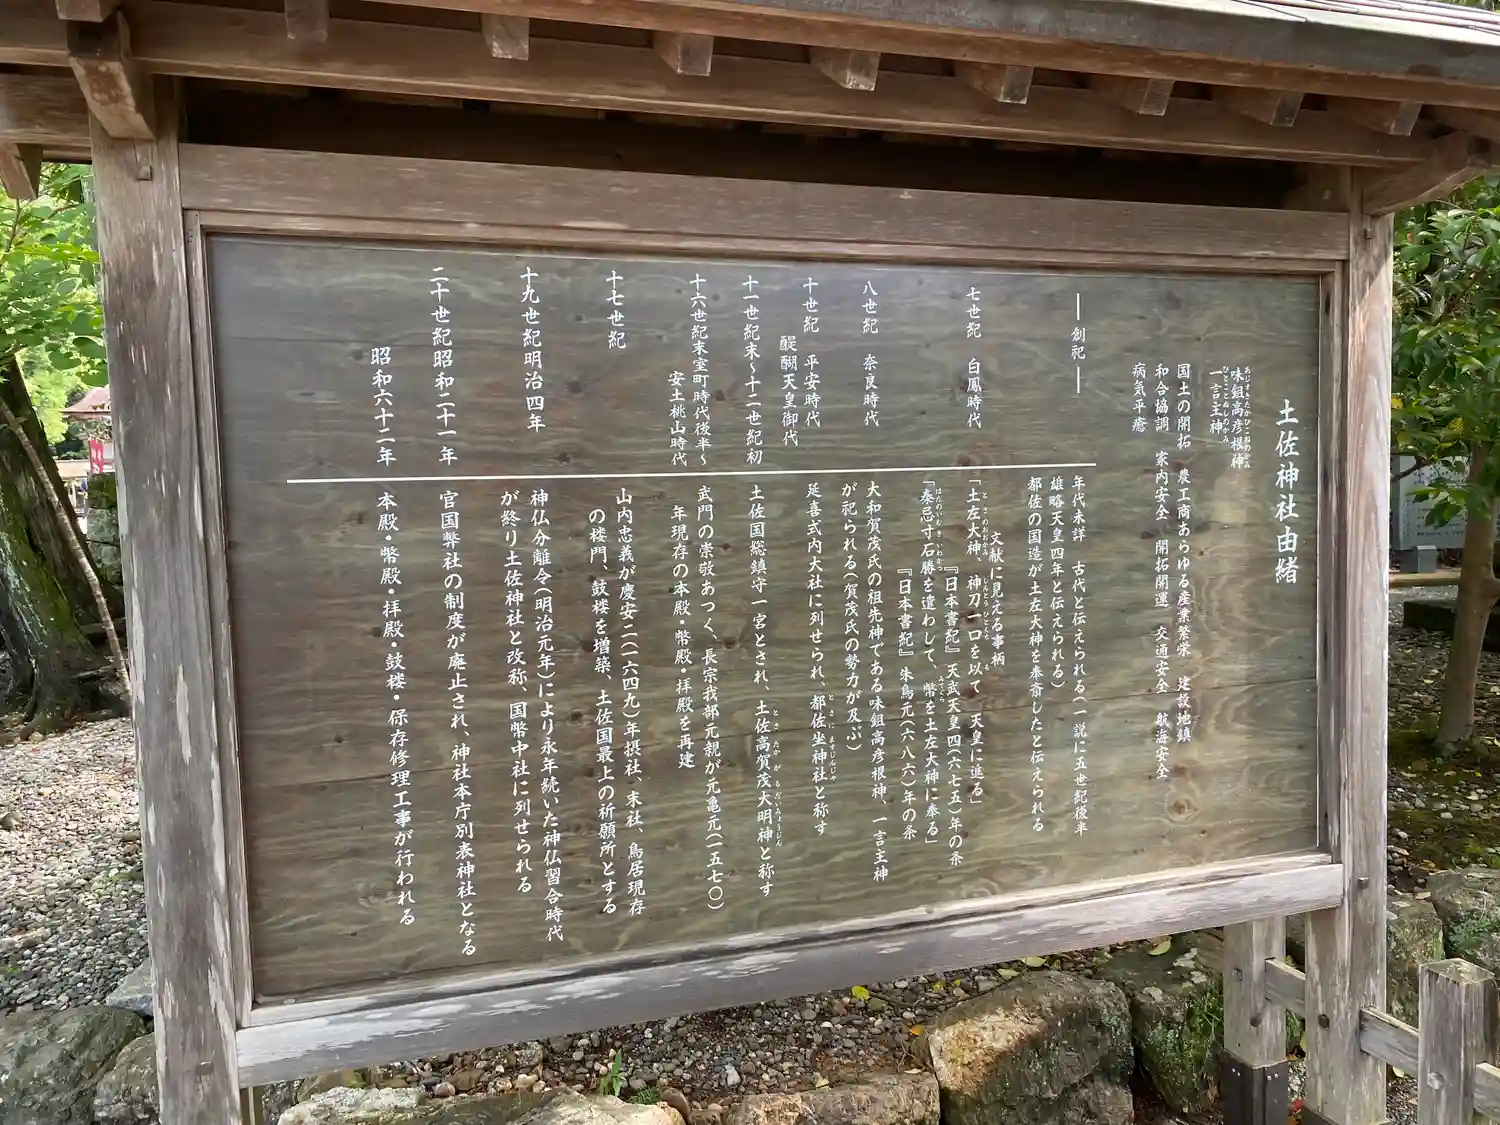 土佐神社由緒
味鉏高彦根神
一言主神
国土の開拓 農工商あらゆる産業繁栄 建設地鎮
和合協調 家内安全 開拓開運 交通安全 航海安全
病気平癒
創祀
年代未詳 古代と伝えられる(一説に五世紀後半
雄略天皇四年と伝えられる)
都佐の国造が土左大神を奉斎したと伝えられる
文献に見える事柄
七世紀 白鳳時代
『日本書紀』天武天皇四(六七五)年の条
「土左大神、神刀一口を以て 天皇に進る」
『日本書紀』朱鳥元(六八六)年の条
「秦忌寸石勝を遣わして、幣を土左大神に奉る」
八世紀 奈良時代
大和賀茂氏の祖先神である味鉏高彦根神、一言主神
が祀られる(賀茂氏の勢力が及ぶ)
十世紀 平安時代
醍醐天皇御代
延喜式内大社に列せられ、都佐坐神社と称す
十一世紀末〜十二世紀初
土佐国総鎮守一宮とされ、土佐高賀茂大明神と称す
十六世紀末室町時代後半〜
安土桃山時代
武門の崇敬あつく、長宗我部元親が元亀元(一五七〇)
年現存の本殿・幣殿・拝殿を再建
十七世紀
山内忠義が慶安二(一六四九)年摂社、末社、鳥居現存
の楼門、鼓楼を増築、土佐国最上の祈願所とする
十九世紀明治四年
神仏分離令(明治元年)により永年続いた神仏習合時代
が終り土佐神社と改称、国幣中社に列せられる
二十世紀昭和二十一年
官国弊社の制度が廃止され、神社本庁別表神社となる
昭和六十二年
本殿・幣殿・拝殿・鼓楼・保存修理工事が行われる